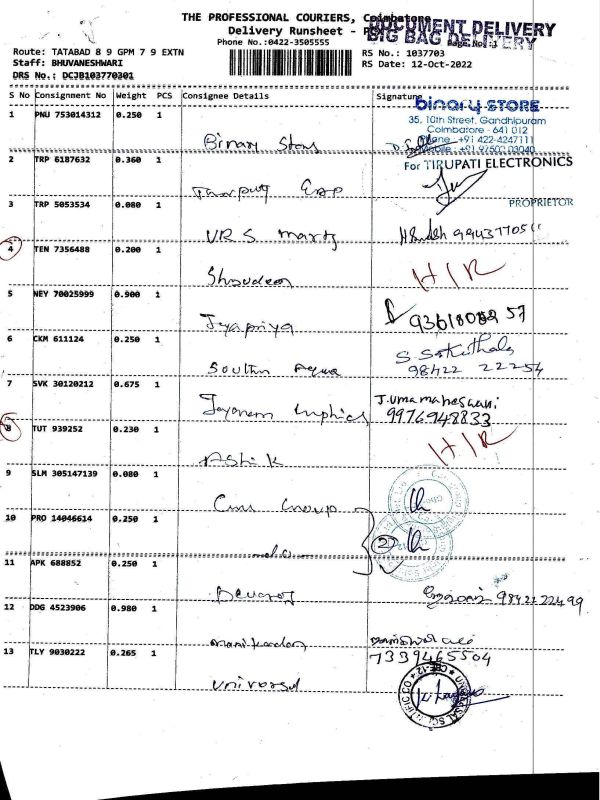 THE PROFESSIONAL COURIERS, Coimbatore
DOCUMENT DELIVERY
Delivery Runsheet -
BIG BAG DELIVERY
Phone No.:0422-3505555
Page No.:1
Route: TATABAD 8 9 GPM 7 9 EXTN
RS No.: 1037703
Staff: BHUVANESHWARI
RS Date: 12-Oct-2022
DRS No.: DCJB103770301
S No Consignment No Weight PCS Consignee Details Signature
binary STORE
35, 10th Street, Gandhipuram
Coimbatore - 641 012
Phone : +91 422-4247111
Mobile : +91 97500 03040
1 PNU 753014312 0.250 1
Binary Store
For TIRUPATI ELECTRONICS
2 TRP 6187632 0.360 1
PROPRIETOR
3 TRP 5053534 0.080 1
VRS
4 TEN 7356488 0.200 1
H/R
5 NEY 70025999 0.900 1
Jyapriya
6 CKM 611124 0.250 1
98422 22254
7 SVK 30120212 0.675 1
J.Uma maheswari
9976948833
8 TUT 939252 0.230 1
Ashik
H/R
9 SLM 305147139 0.080 1
Group
10 PRO 14046614 0.250 1
2
11 APK 688852 0.250 1
12 DDG 4523906 0.980 1
Manikandan
7339465504
13 TLY 9030222 0.265 1
Universal